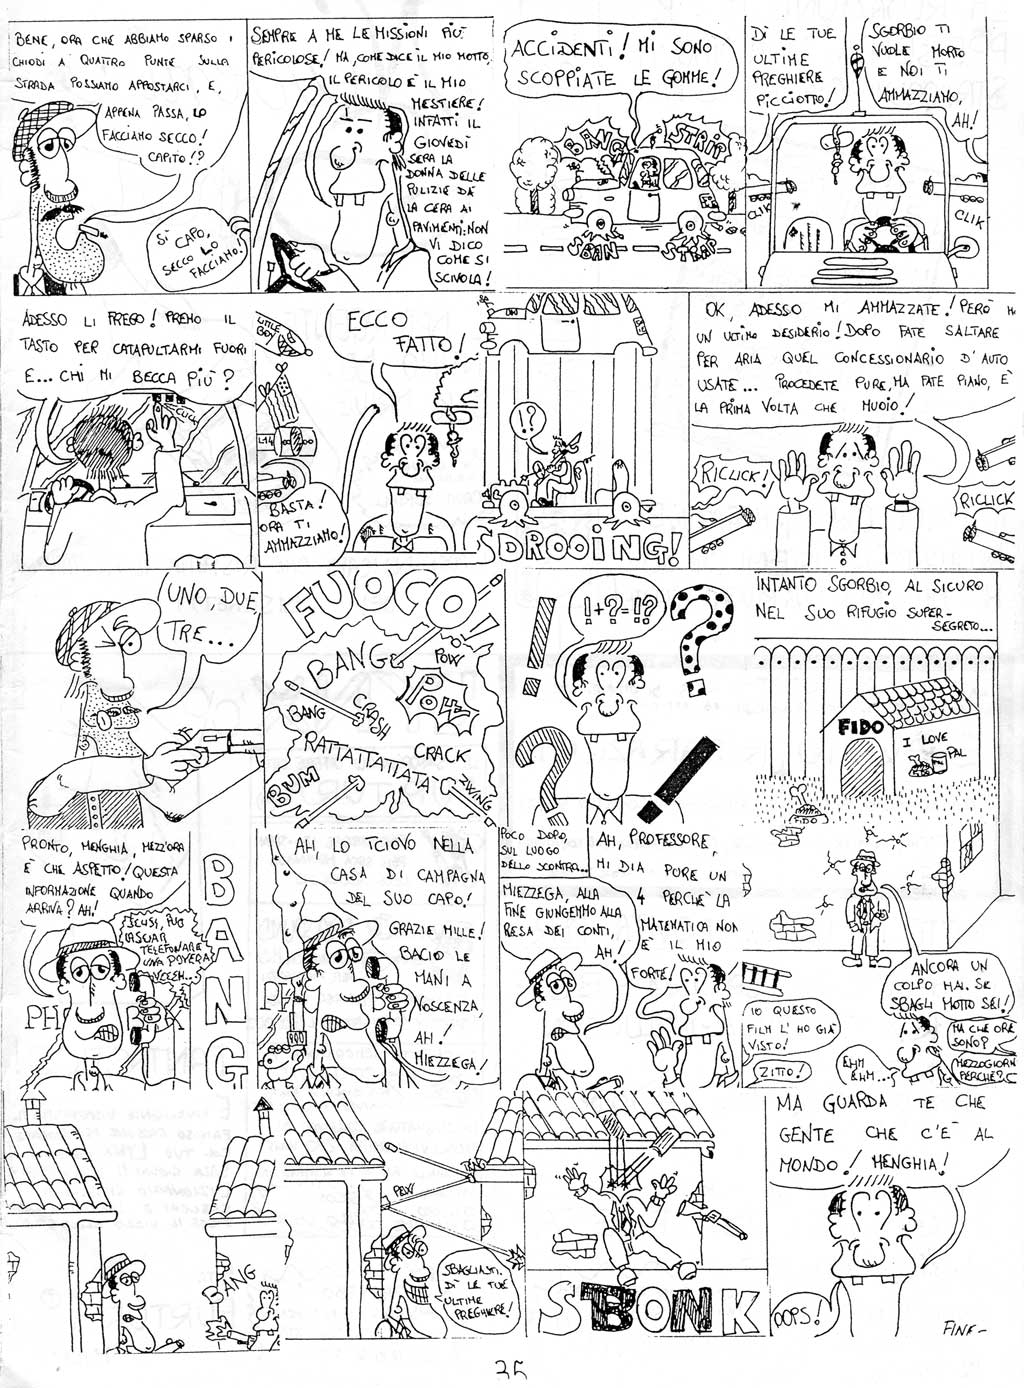 BENE, ORA CHE ABBIAMO SPARSO I
CHIODI A QUATTRO PUNTE SULLA
STRADA POSSIAMO APPOSTARCI, E,
APPENA PASSA, LO
FACCIAMO SECCO!
CAPITO!?
SI CAPO,
SECCO LO
FACCIAMO!
SEMPRE A ME LE MISSIONI PIÙ
PERICOLOSE! MA, COME DICE IL MIO MOTTO,
IL PERICOLO È IL MIO
MESTIERE!
INFATTI IL
GIOVEDÌ
SERA LA
DONNA DELLE
PULIZIE DÀ
LA CERA AI
PAVIMENTI: NON
VI DICO
COME SI
SCIVOLA!
ACCIDENTI! MI SONO
SCOPPIATE LE GOMME!
BANG
STRIP
SBAN
STRAP
DÌ LE TUE
ULTIME
PREGHIERE
PICCIOTTO!
SGORBIO TI
VUOLE MORTO
E NOI TI
AMMAZZIAMO,
AH!
CLIK
CLIK
ADESSO LI FREGO! PREMO IL
TASTO PER CATAPULTARMI FUORI
E... CHI MI BECCA PIÙ?
CLICK
LITTLE
BOY
ECCO
FATTO!
BASTA!
ORA TI
AMMAZZIAMO!
!?
SDROOING!
OK, ADESSO MI AMMAZZATE! PERÒ HO
UN ULTIMO DESIDERIO! DOPO FATE SALTARE
PER ARIA QUEL CONCESSIONARIO D'AUTO
USATE... PROCEDETE PURE, MA FATE PIANO, È
LA PRIMA VOLTA CHE MUOIO!
RICLICK!
RICLICK
UNO, DUE,
TRE...
FUOCO!
BANG
POW
BANG
CRASH
POW
RATTATTATTATÀ
CRACK
BUM
ZWING
!+?=!?
! ? ? !
INTANTO SGORBIO, AL SICURO
NEL SUO RIFUGIO SUPER-
SEGRETO...
FIDO
I LOVE
PAL
FIDO
PRONTO, MENGHIA, MEZZ'ORA
È CHE ASPETTO! QUESTA
INFORMAZIONE QUANDO
ARRIVA? AH!
SCUSI, PUÒ
LASCIAR
TELEFONARE
UNA POVERA
PH
BANG
AH, LO TCIOVO NELLA
CASA DI CAMPAGNA
DEL SUO CAPO!
GRAZIE MILLE!
BACIO LE
MANI A
VOSCENZA,
AH!
MIEZZEGA!
PH
POCO DOPO,
SUL LUOGO
DELLO SCONTRO...
MIEZZEGA, ALLA
FINE GIUNGEMMO ALLA
RESA DEI CONTI,
AH!
AH, PROFESSORE,
MI DIA PURE UN
4 PERCHÈ LA
MATEMATICA NON
È IL MIO
FORTE!
ANCORA UN
COLPO HAI. SE
SBAGLI MOTTO SEI!
IO QUESTO
FILM L'HO GIÀ
VISTO!
ZITTO!
EHM
EHM...
MA CHE ORE
SONO?
MEZZOGIORNO
PERCHÈ?
BANG
POW
TENG
SBAGLIASTI.
DÌ LE TUE
ULTIME
PREGHIERE!
STBONK
MA GUARDA TE CHE
GENTE CHE C'È AL
MONDO! MENGHIA!
OOPS!
FINE-
35